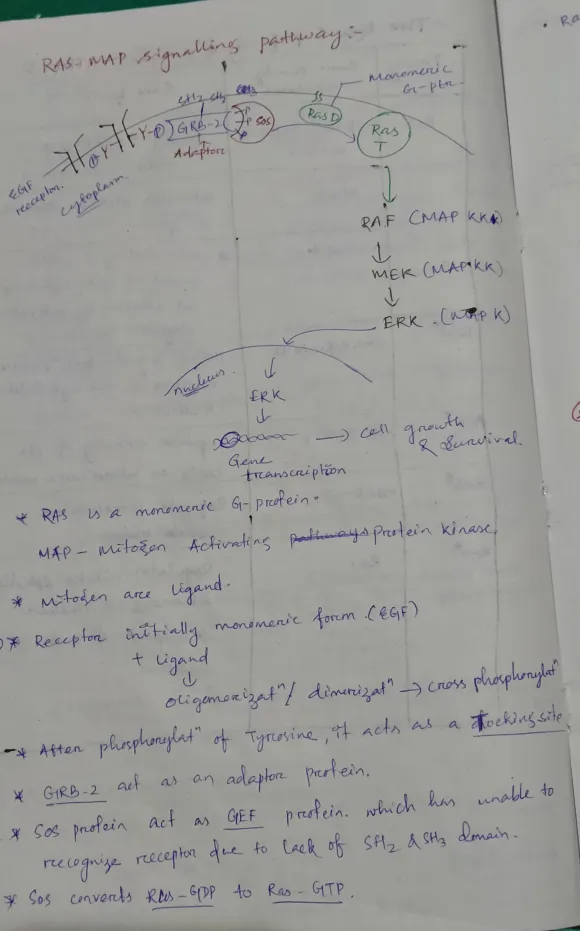 RAS-MAP signalling pathway:-
Monomeric
G-ptn
SH2 SH3
EGF
receptor.
Y-P
GRB-2
P
P
P
SOS
Ras D
Ras
T
Adaptor
cytoplasm
RAF (MAP KKK)
MEK (MAP KK)
ERK. (MAP K)
nucleus.
ERK
→ cell growth
& survival.
Gene
transcription
* RAS is a monomeric G-protein.
MAP - Mitogen Activating pathways protein kinase.
* Mitogen are ligand.
* Receptor initially monomeric form. (EGF)
+ ligand
oligomerizatⁿ / dimerizatⁿ → cross phosphorylatⁿ
* After phosphorylatⁿ of Tyrosine, it acts as a Docking site
* GRB-2 act as an adaptor protein.
* SOS protein act as GEF protein. which has unable to
recognize receptor due to lack of SH2 & SH3 domain.
* SOS converts Ras-GDP to Ras-GTP.